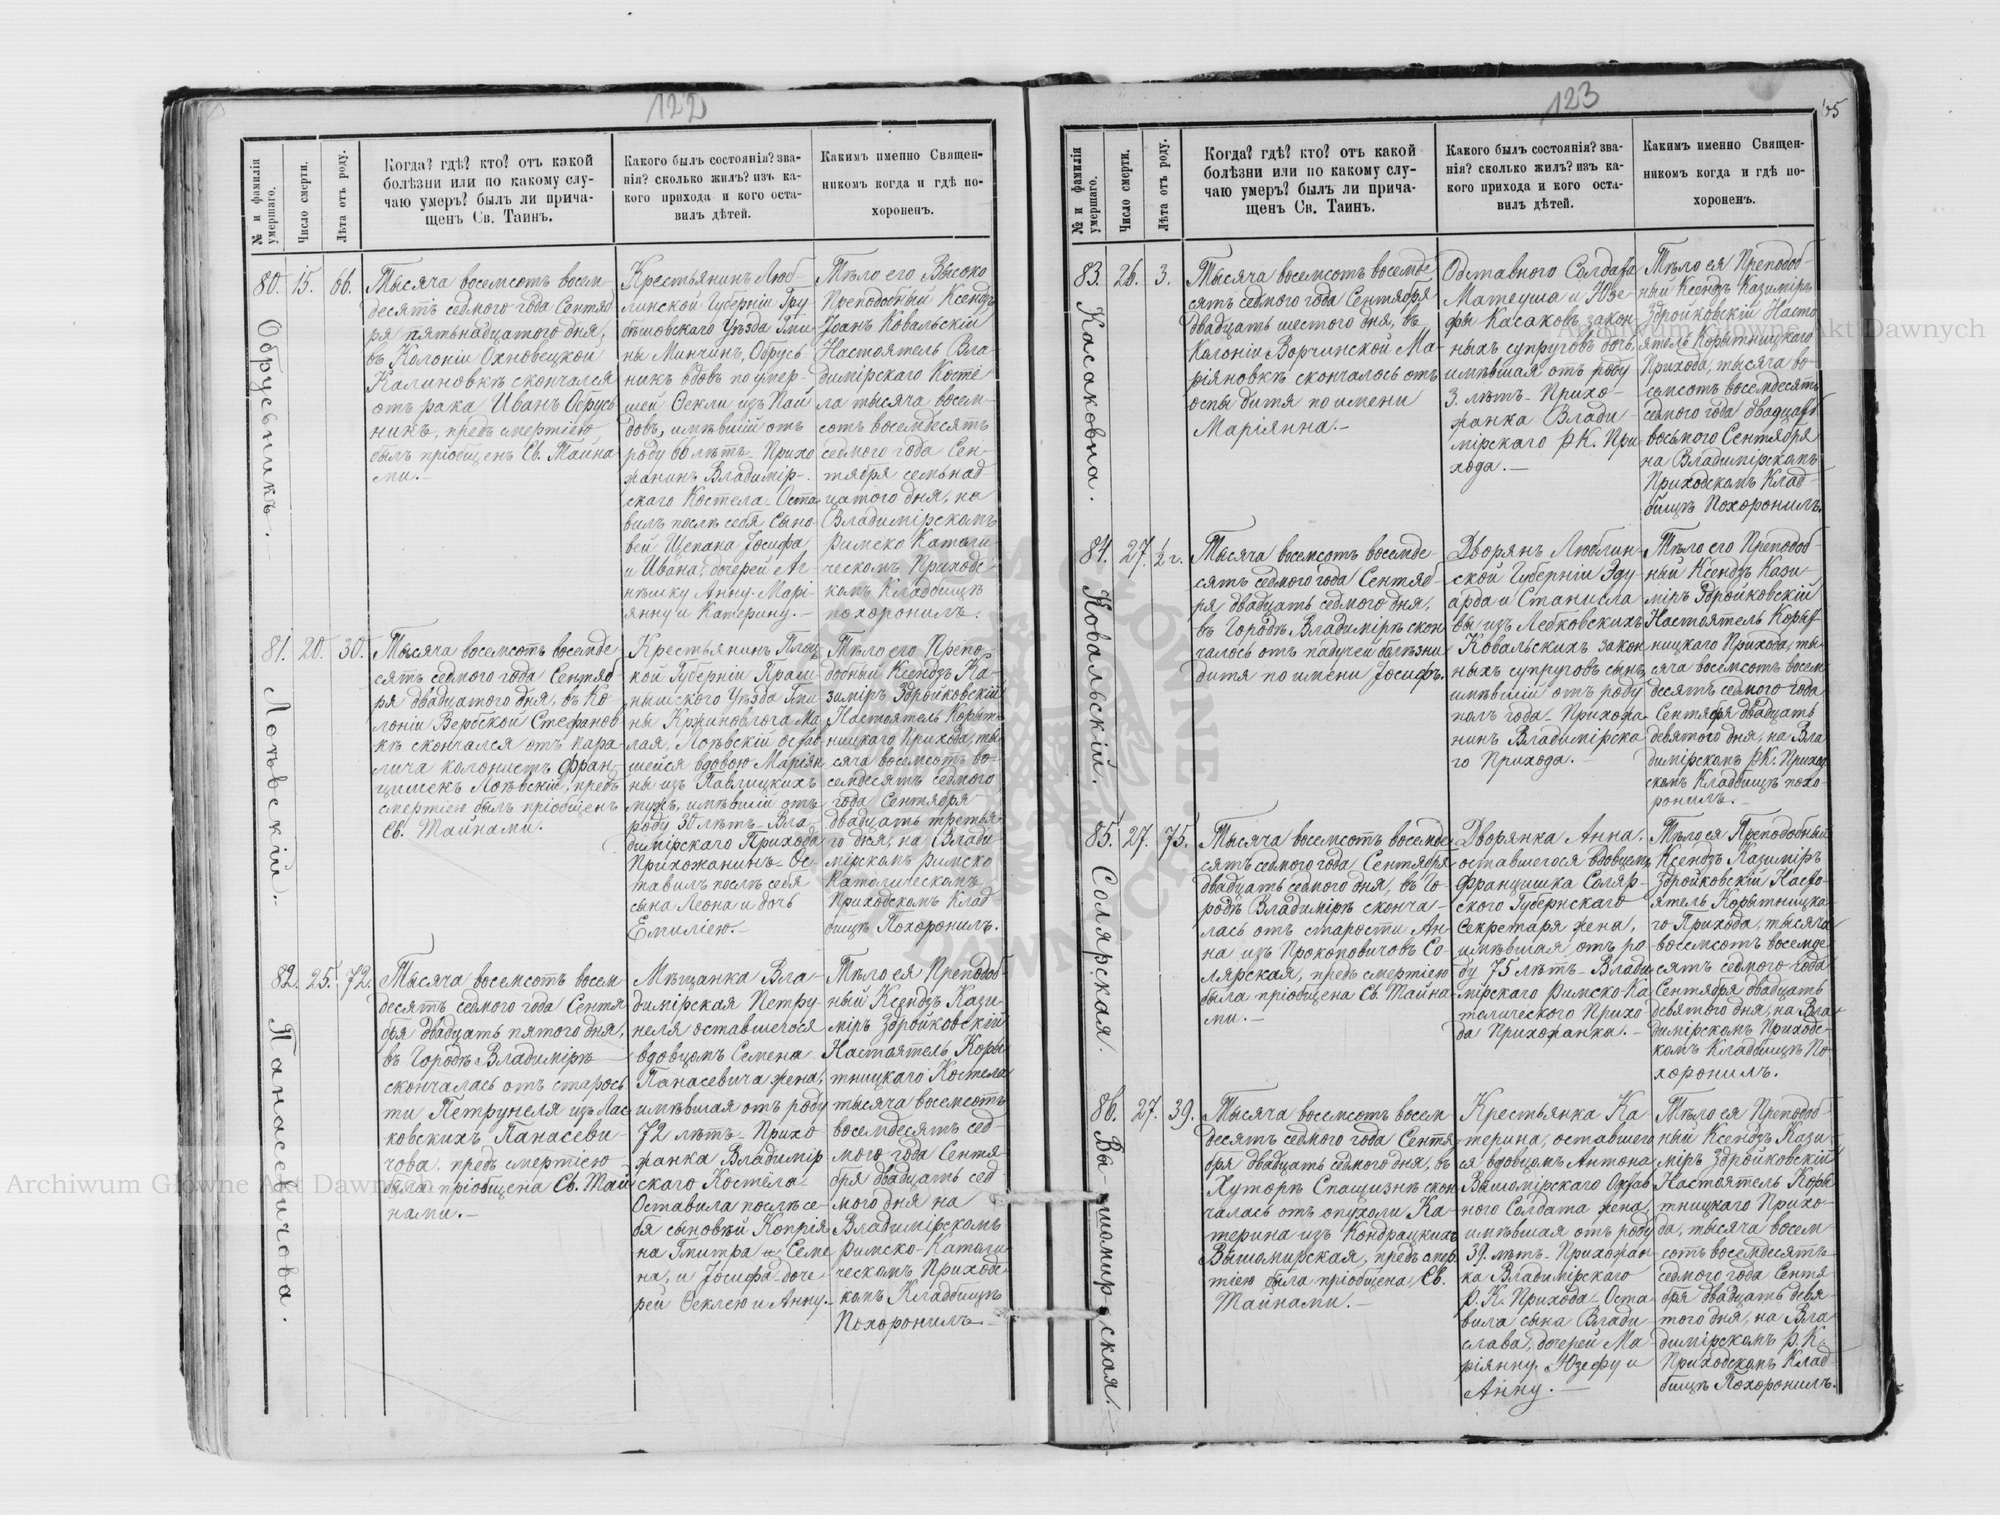 122
№ и фамилія умершаго.
Число смерти.
Лѣта отъ роду.
Когда? гдѣ? кто? отъ какой
болѣзни или по какому слу-
чаю умеръ? былъ ли прича-
щенъ Св. Таинъ.
Какого былъ состоянія? зва-
нія? сколько жилъ? изъ ка-
кого прихода и кого оста-
вилъ дѣтей.
Какимъ именно Священ-
никомъ когда и гдѣ по-
хороненъ.
80. Обрусьникъ.
15.
66.
Тысяча восемсотъ восем
десятъ седмого года Сентяб
ря пятьнадцатого дня,
въ Колоніи Охновецкой
Калиновкѣ скончался
отъ рака Иванъ Обрусь
никъ, предъ смертією
былъ пріобщенъ Св. Тайна
ми.-
Крестьянинъ Люб-
линской Губерніи Гру
бешовскаго Уѣзда Гми
ны Минчинъ, Обрусь
никъ вдовъ по умер-
шей Феклы изъ Пай
довъ, имѣвшій отъ
роду 66 лѣтъ - Прихо
жанинъ Владимір-
скаго Костела - Оста
вилъ послѣ себя Сыно-
вей Щепана Іосифа
и Ивана, дочерей Аг-
нѣшку Анну Марі-
янну и Катерину.-
Тѣло его Высоко
Преподобный Ксендзъ
Іоанъ Ковальскій
Настоятель Вла-
димірскаго Косте
ла тысяча восем-
сотъ восемдесятъ
седмого года Сен-
тября семьнад
цатого дня, на
Владимірскомъ
Римско Католи-
ческомъ Приходс-
комъ Кладбищѣ
похоронилъ.
81. Лоѣвскій.-
20.
30.
Тысяча восемсотъ восемде
сятъ седмого года Сентяб
ря двадцатого дня, въ Ко
лоніи Вербской Стефанов
кѣ скончался отъ пара
лича колонистъ Фран-
цишекъ Лоѣвскій, предъ
смертією былъ пріобщенъ
Св. Тайнами.
Крестьянинъ Плоц
кой Губерніи Прас
нышского Уѣзда Гми
ны Кржиновлога Ма
лая, Лоѣвскій остав-
шейся вдовою Маріян
ны изъ Павлицкихъ
мужъ, имѣвшій отъ
роду 30 лѣтъ - Вла-
димірскаго Прихода
Прихожанинъ - Ос
тавилъ послѣ себя
сына Леона и дочь
Емилію.-
Тѣло его Препо-
добный Ксендзъ Ка-
зиміръ Здройковскій
Настоятель Корыт
ницкаго Прихода, ты
сяча восемсотъ во-
семдесятъ седмого
года Сентября
двадцать третья
го дня, на Влади-
мірскомъ Римско
Католическомъ
Приходскомъ Клад
бищѣ Похоронилъ.
82. Панасевичова.
25.
72.
Тысяча восемсотъ восем
десятъ седмого года Сентя
бря двадцать пятого дня,
въ Городѣ Владимірѣ
скончалась отъ старос
ти Петрунеля изъ Лас
ковскихъ Панасеви-
чова, предъ смертією
была пріобщена Св. Тай
нами.-
Мѣщанка Вла-
димірская Петру
неля оставшегося
вдовцомъ Семена
Панасевича жена,
имѣвшая отъ роду
72 лѣтъ - Прихо
жанка Владимір
скаго Костела-
Оставила послѣ се-
бя сыновѣй Копрія
на Гмитра и Семе
на, и Іосифа доче-
рей Феклею и Анну.-
Тѣло ея Преподоб
ный Ксендзъ Кази
міръ Здройковскій
Настоятель Коры
тницкаго Костела
тысяча восемсотъ
восемдесятъ сед-
мого года Сентя-
бря двадцать сед
мого дня на
Владимірскомъ
Римско-Католи
ческомъ Приходс
комъ Кладбищѣ
Похоронилъ
123
№ и фамилія умершаго.
Число смерти.
Лѣта отъ роду.
Когда? гдѣ? кто? отъ какой
болѣзни или по какому слу-
чаю умеръ? былъ ли прича-
щенъ Св. Таинъ.
Какого былъ состоянія? зва-
нія? сколько жилъ? изъ ка-
кого прихода и кого оста-
вилъ дѣтей.
Какимъ именно Священ-
никомъ когда и гдѣ по-
хороненъ.
83. Касаковна.
26.
3.
Тысяча восемсотъ восемде
сятъ седмого года Сентября
двадцать шестого дня, въ
Колоніи Ворчинской Ма-
ріяновкѣ скончалось отъ
оспы дитя по имени
Маріянна.-
Отставного Солдата
Матеуша и Юзе-
фы Касаковъ закон-
ныхъ супруговъ дочь
имѣвшая отъ роду
3. лѣтъ - Прихо-
жанка Влади-
мірскаго Р.К. При
хода.-
Тѣло ея Преподоб-
ный Ксендзъ Казиміръ
Здройковскій Насто
ятель Корытницкаго
Прихода, тысяча во-
семсотъ восемдесятъ
седмого года двадцать
восьмого Сентября
на Владимірскомъ
Приходскомъ Клад-
бищѣ Похоронилъ.
84. Ковальскій.
27.
½ г.
Тысяча восемсотъ восемде-
сятъ седмого года Сентяб-
ря двадцать седмого дня,
въ Городѣ Владимірѣ скон
чалось отъ падучей болѣзни
дитя по имени Іосифъ.
Дворянъ Люблин-
ской Губерніи Эду-
арда и Станисла
вы изъ Ледковскихъ
Ковальскихъ закон
ныхъ супруговъ сынъ,
имѣвшій отъ роду
полъ года - Прихожа
нинъ Владимірска
го Прихода.-
Тѣло его Преподоб-
ный Ксендзъ Кази-
міръ Здройковскій
Настоятель Корыт
ницкаго Прихода, ты-
сяча восемсотъ восем
десятъ седмого года
Сентября двадцать
девятого дня, на Вла
димірскомъ Р.К. Приход
скомъ Кладбищѣ похо-
ронилъ.-
85. Солярская.
27.
75.
Тысяча восемсотъ восемде
сятъ седмого года Сентября
двадцать седмого дня, въ Го-
родѣ Владимірѣ сконча-
лась отъ старости Ан-
на изъ Прокоповичовъ Со-
лярская, предъ смертією
была пріобщена Св. Тайна-
ми.-
Дворянка Анна,
оставшегося вдовцемъ
Францишка Соляр-
ского Губернскаго
Секретаря жена,
имѣвшая отъ ро-
ду 75 лѣтъ - Влади
мірскаго Римско Ка
толическаго Прихо-
да Прихожанка.-
Тѣло ея Преподобный
Ксендзъ Казиміръ
Здройковскій Насто-
ятель Корытницка-
го Прихода, тысяча
восемсотъ восемде
сятъ седмого года
Сентября двадцать
девятого дня, на Вла
димірскомъ Приходс-
комъ Кладбищѣ По-
хоронилъ.
86. Вы-шомир-ская.
27.
39.
Тысяча восемсотъ восем
десятъ седмого года Сентя
бря двадцать седмого дня, въ
Хуторѣ Спащизнѣ скон
чалась отъ опухоли Ка-
терина изъ Кондрацкихъ
Вышомирская, предъ смер
тією была пріобщена Св.
Тайнами.-
Крестьянка Ка-
терина, оставшего
ся вдовцомъ Антона
Вышомірскаго Остав
ного Солдата жена,
имѣвшая отъ роду
39. лѣтъ - Прихожан
ка Владимірскаго
Р.К. Прихода - Оста
вила сына Влади-
слава, дочерей Ма
ріянну, Юзефу и
Анну.-
Тѣло ея Преподоб-
ный Ксендзъ Кази-
міръ Здройковскій
Настоятель Коры
тницкаго Прихо-
да, тысяча восем-
сотъ восемдесятъ
седмого года Сентя
бря двадцать девя-
того дня, на Вла-
димірскомъ Р.К.
Приходскомъ Клад-
бищѣ Похоронилъ.
Archiwum Główne Akt Dawnych
Archiwum Główne Akt Dawnych